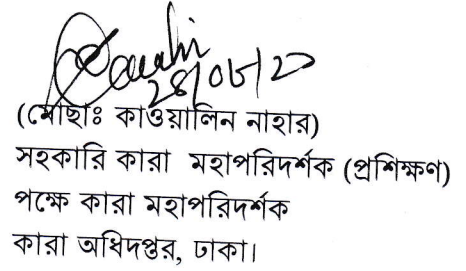 28/০৮/২০
(মোছাঃ কাওয়ালিন নাহার)
সহকারি কারা মহাপরিদর্শক (প্রশিক্ষণ)
পক্ষে কারা মহাপরিদর্শক
কারা অধিদপ্তর, ঢাকা।